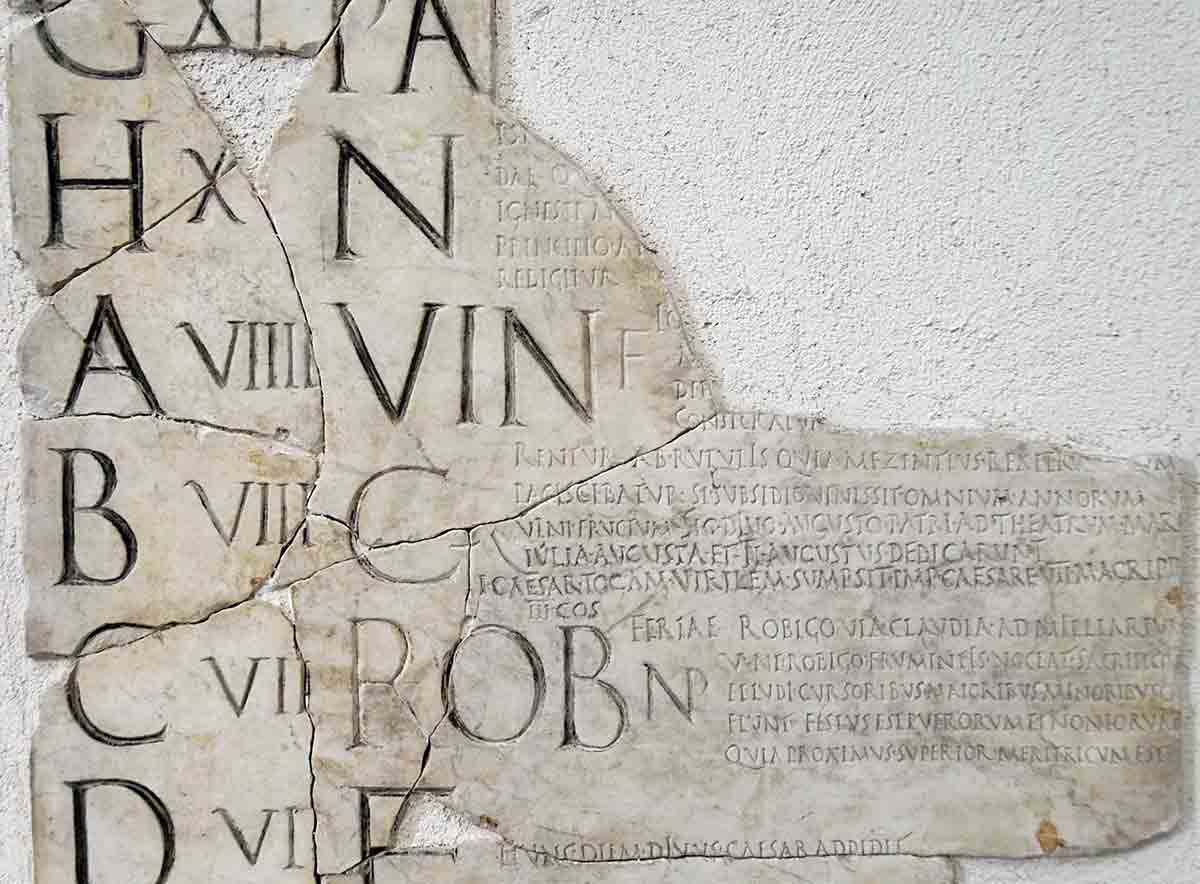 G XI PA
H X N
DAE
PRINCIPIO·A
REDIGITVR
A VIIII VIN F
CONSECRA
B VIII C
RENTVR·AB RVTVLIS QVIA MEZENTIVS REX
PACISCEBATVR·SI SVBSIDIO VENISSET OMNIVM·ANNORVM
VINI FRVCTVM·SIG·DIVO·AVGVSTO PATRI·AD THEATRVM·MAR
IVLIA·AVGVSTA ET·TI·AVGVSTVS DEDICARVNT
TI·CAESAR TOGAM VIRILEM SVMPSIT·IMP CAESARE VII M AGRIPP
III COS
C VII ROB NP FERIAE ROBIGO VIA CLAVDIA·AD MILLIAR
V·NE ROBIGO FRVMENTIS NOCEAT·SACRIFICI
ET LVDI CVRSORIBVS MAIORIBVS MINORIBVSQ
FIVNT FESTVS EST PVERORVM LENONIORVM
QVIA PROXIMVS·SVPERIOR MERETRICVM EST
D VI F HVNC DIEM·DIVVS·CAESAR ADDIDIT